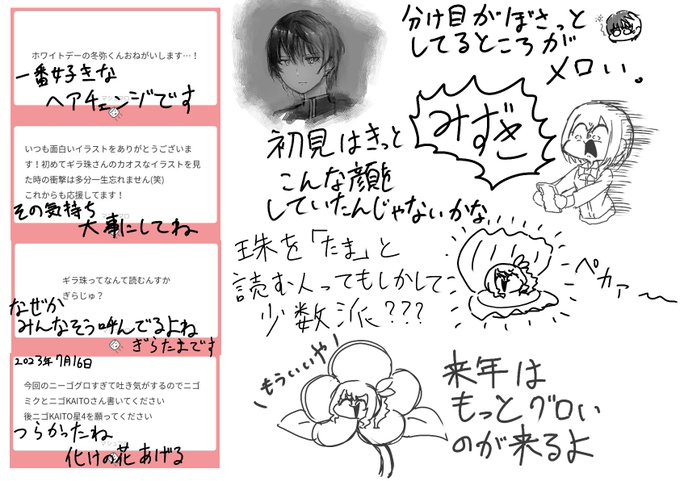 ホワイトデーの冬弥くんおねがいします…！
一番好きな
ヘアチェンジです
分け目がぼさっと
してるところが
メロい。
いつも面白いイラストをありがとうございま
す！初めてギラ珠さんのカオスなイラストを見
た時の衝撃は多分一生忘れません(笑)
これからも応援してます！
その気持ち
大事にしてね
初見はきっと
こんな顔
していたんじゃないかな
みずき
ギラ珠ってなんて読むんすか
ぎらじゅ？
なぜか
みんなそう呼んでるよね
ぎらたまです
珠を「たま」と
読む人ってもしかして
少数派???
ペカァー〜
2023年7月16日
今回のニーゴグロすぎて吐き気がするのでニゴ
ミクとニゴKAITOさん書いてください
後ニゴKAITO星4を願ってください
つらかったね
化けの花あげる
もういいや!
来年は
もっとグロい
のが来るよ